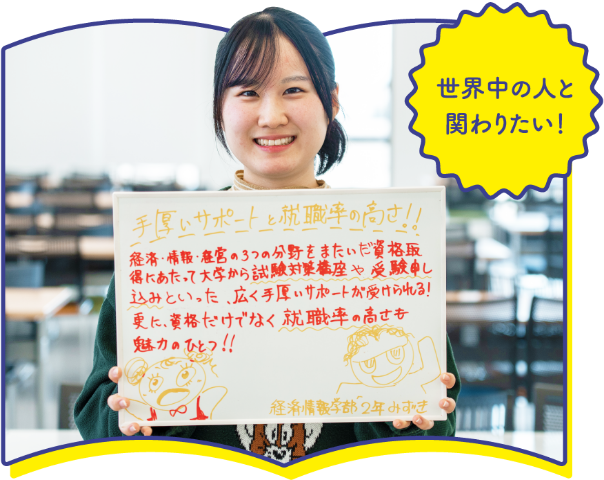 世界中の人と
関わりたい！
手厚いサポートと就職率の高さ!!
経済・情報・経営の3つの分野をまたいだ資格取
得にあたって大学から試験対策講座や受験申し
込みといった、広く手厚いサポートが受けられる!
更に、資格だけでなく就職率の高さも
魅力のひとつ!!
経済情報学部 2年 みずき